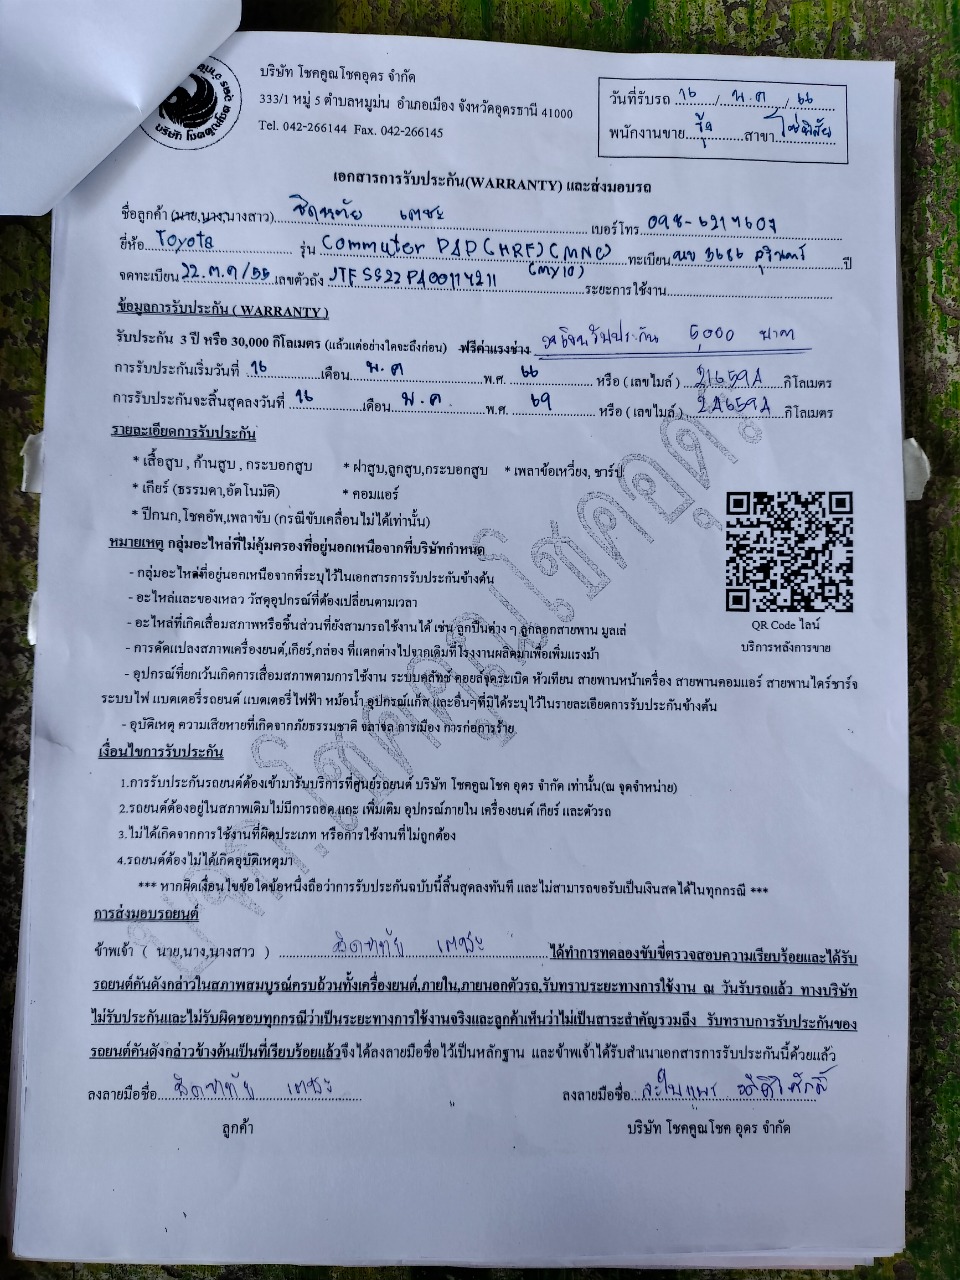 บริษัท โชคคูณโชคอุดร จำกัด
333/1 หมู่ 5 ตำบลหมูม่น อำเภอเมือง จังหวัดอุดรธานี 41000
Tel. 042-266144 Fax. 042-266145
วันที่รับรถ 16 / พ.ค / 66
พนักงานขาย สาขา
เอกสารการรับประกัน(WARRANTY) และส่งมอบรถ
ชื่อลูกค้า (นาย,นาง,นางสาว) เบอร์โทร 098-6217607
ยี่ห้อ Toyota รุ่น Commuter ทะเบียน ปี
จดทะเบียน 22.ต.ค/55 เลขตัวถัง JTFSS22PA00114211 (MY10) ระยะการใช้งาน
ข้อมูลการรับประกัน ( WARRANTY )
รับประกัน 3 ปี หรือ 30,000 กิโลเมตร (แล้วแต่อย่างใดจะถึงก่อน) ฟรีค่าแรงช่าง วงเงินรับประกัน 5,000 บาท
การรับประกันเริ่มวันที่ 16 เดือน พ.ค พ.ศ. 66 หรือ ( เลขไมล์ ) กิโลเมตร
การรับประกันจะสิ้นสุดลงวันที่ 16 เดือน พ.ค. พ.ศ. 69 หรือ ( เลขไมล์ ) กิโลเมตร
รายละเอียดการรับประกัน
* เสื้อสูบ , ก้านสูบ , กระบอกสูบ * ฝาสูบ,ลูกสูบ,กระบอกสูบ * เพลาข้อเหวี่ยง, ชาร์ป
* เกียร์ (ธรรมดา,อัตโนมัติ) * คอมแอร์
* ปีกนก,โชคอัพ,เพลาขับ (กรณีขับเคลื่อนไม่ได้เท่านั้น)
หมายเหตุ กลุ่มอะไหล่ที่ไม่คุ้มครองที่อยู่นอกเหนือจากที่บริษัทกำหนด
- กลุ่มอะไหล่ที่อยู่นอกเหนือจากที่ระบุไว้ในเอกสารการรับประกันข้างต้น
- อะไหล่และของเหลว วัสดุอุปกรณ์ที่ต้องเปลี่ยนตามเวลา
- อะไหล่ที่เกิดเสื่อมสภาพหรือชิ้นส่วนที่ยังสามารถใช้งานได้ เช่น ลูกปืนต่าง ๆ ลูกลอกสายพาน มูลเล่
- การดัดแปลงสภาพเครื่องยนต์,เกียร์,กล่อง ที่แตกต่างไปจากเดิมที่โรงงานผลิตมาเพื่อเพิ่มแรงม้า
- อุปกรณ์ที่ยกเว้นเกิดการเสื่อมสภาพตามการใช้งาน ระบบคลัทช์ คอยล์จุดระเบิด หัวเทียน สายพานหน้าเครื่อง สายพานคอมแอร์ สายพานไดร์ชาร์จ
ระบบไฟ แบตเตอรี่รถยนต์ แบตเตอรี่ไฟฟ้า หม้อน้ำ อุปกรณ์แก๊ส และอื่นๆที่มิได้ระบุไว้ในรายละเอียดการรับประกันข้างต้น
- อุบัติเหตุ ความเสียหายที่เกิดจากภัยธรรมชาติ จลาจล การเมือง การก่อการร้าย
QR Code ไลน์
บริการหลังการขาย
เงื่อนไขการรับประกัน
1.การรับประกันรถยนต์ต้องเข้ามารับบริการที่ศูนย์รถยนต์ บริษัท โชคคูณโชค อุดร จำกัด เท่านั้น(ณ จุดจำหน่าย)
2.รถยนต์ต้องอยู่ในสภาพเดิมไม่มีการถอด แกะ เพิ่มเติม อุปกรณ์ภายใน เครื่องยนต์ เกียร์ และตัวรถ
3.ไม่ได้เกิดจากการใช้งานที่ผิดประเภท หรือการใช้งานที่ไม่ถูกต้อง
4.รถยนต์ต้องไม่ได้เกิดอุบัติเหตุมา
*** หากผิดเงื่อนไขข้อใดข้อหนึ่งถือว่าการรับประกันฉบับนี้สิ้นสุดลงทันที และไม่สามารถขอรับเป็นเงินสดได้ในทุกกรณี ***
การส่งมอบรถยนต์
ข้าพเจ้า ( นาย,นาง,นางสาว ) ได้ทำการทดลองขับขี่ตรวจสอบความเรียบร้อยและได้รับ
รถยนต์คันดังกล่าวในสภาพสมบูรณ์ครบถ้วนทั้งเครื่องยนต์,ภายใน,ภายนอกตัวรถ,รับทราบระยะทางการใช้งาน ณ วันรับรถแล้ว ทางบริษัท
ไม่รับประกันและไม่รับผิดชอบทุกกรณีว่าเป็นระยะทางการใช้งานจริงและลูกค้าเห็นว่าไม่เป็นสาระสำคัญรวมถึง รับทราบการรับประกันของ
รถยนต์คันดังกล่าวข้างต้นเป็นที่เรียบร้อยแล้วจึงได้ลงลายมือชื่อไว้เป็นหลักฐาน และข้าพเจ้าได้รับสำเนาเอกสารการรับประกันนี้ด้วยแล้ว
ลงลายมือชื่อ ลงลายมือชื่อ
ลูกค้า บริษัท โชคคูณโชค อุดร จำกัด